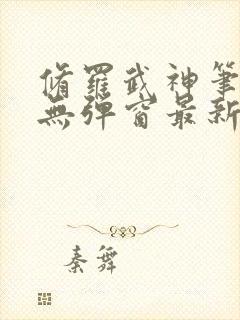 脩羅武神筆
無彈窗最新
秦舞